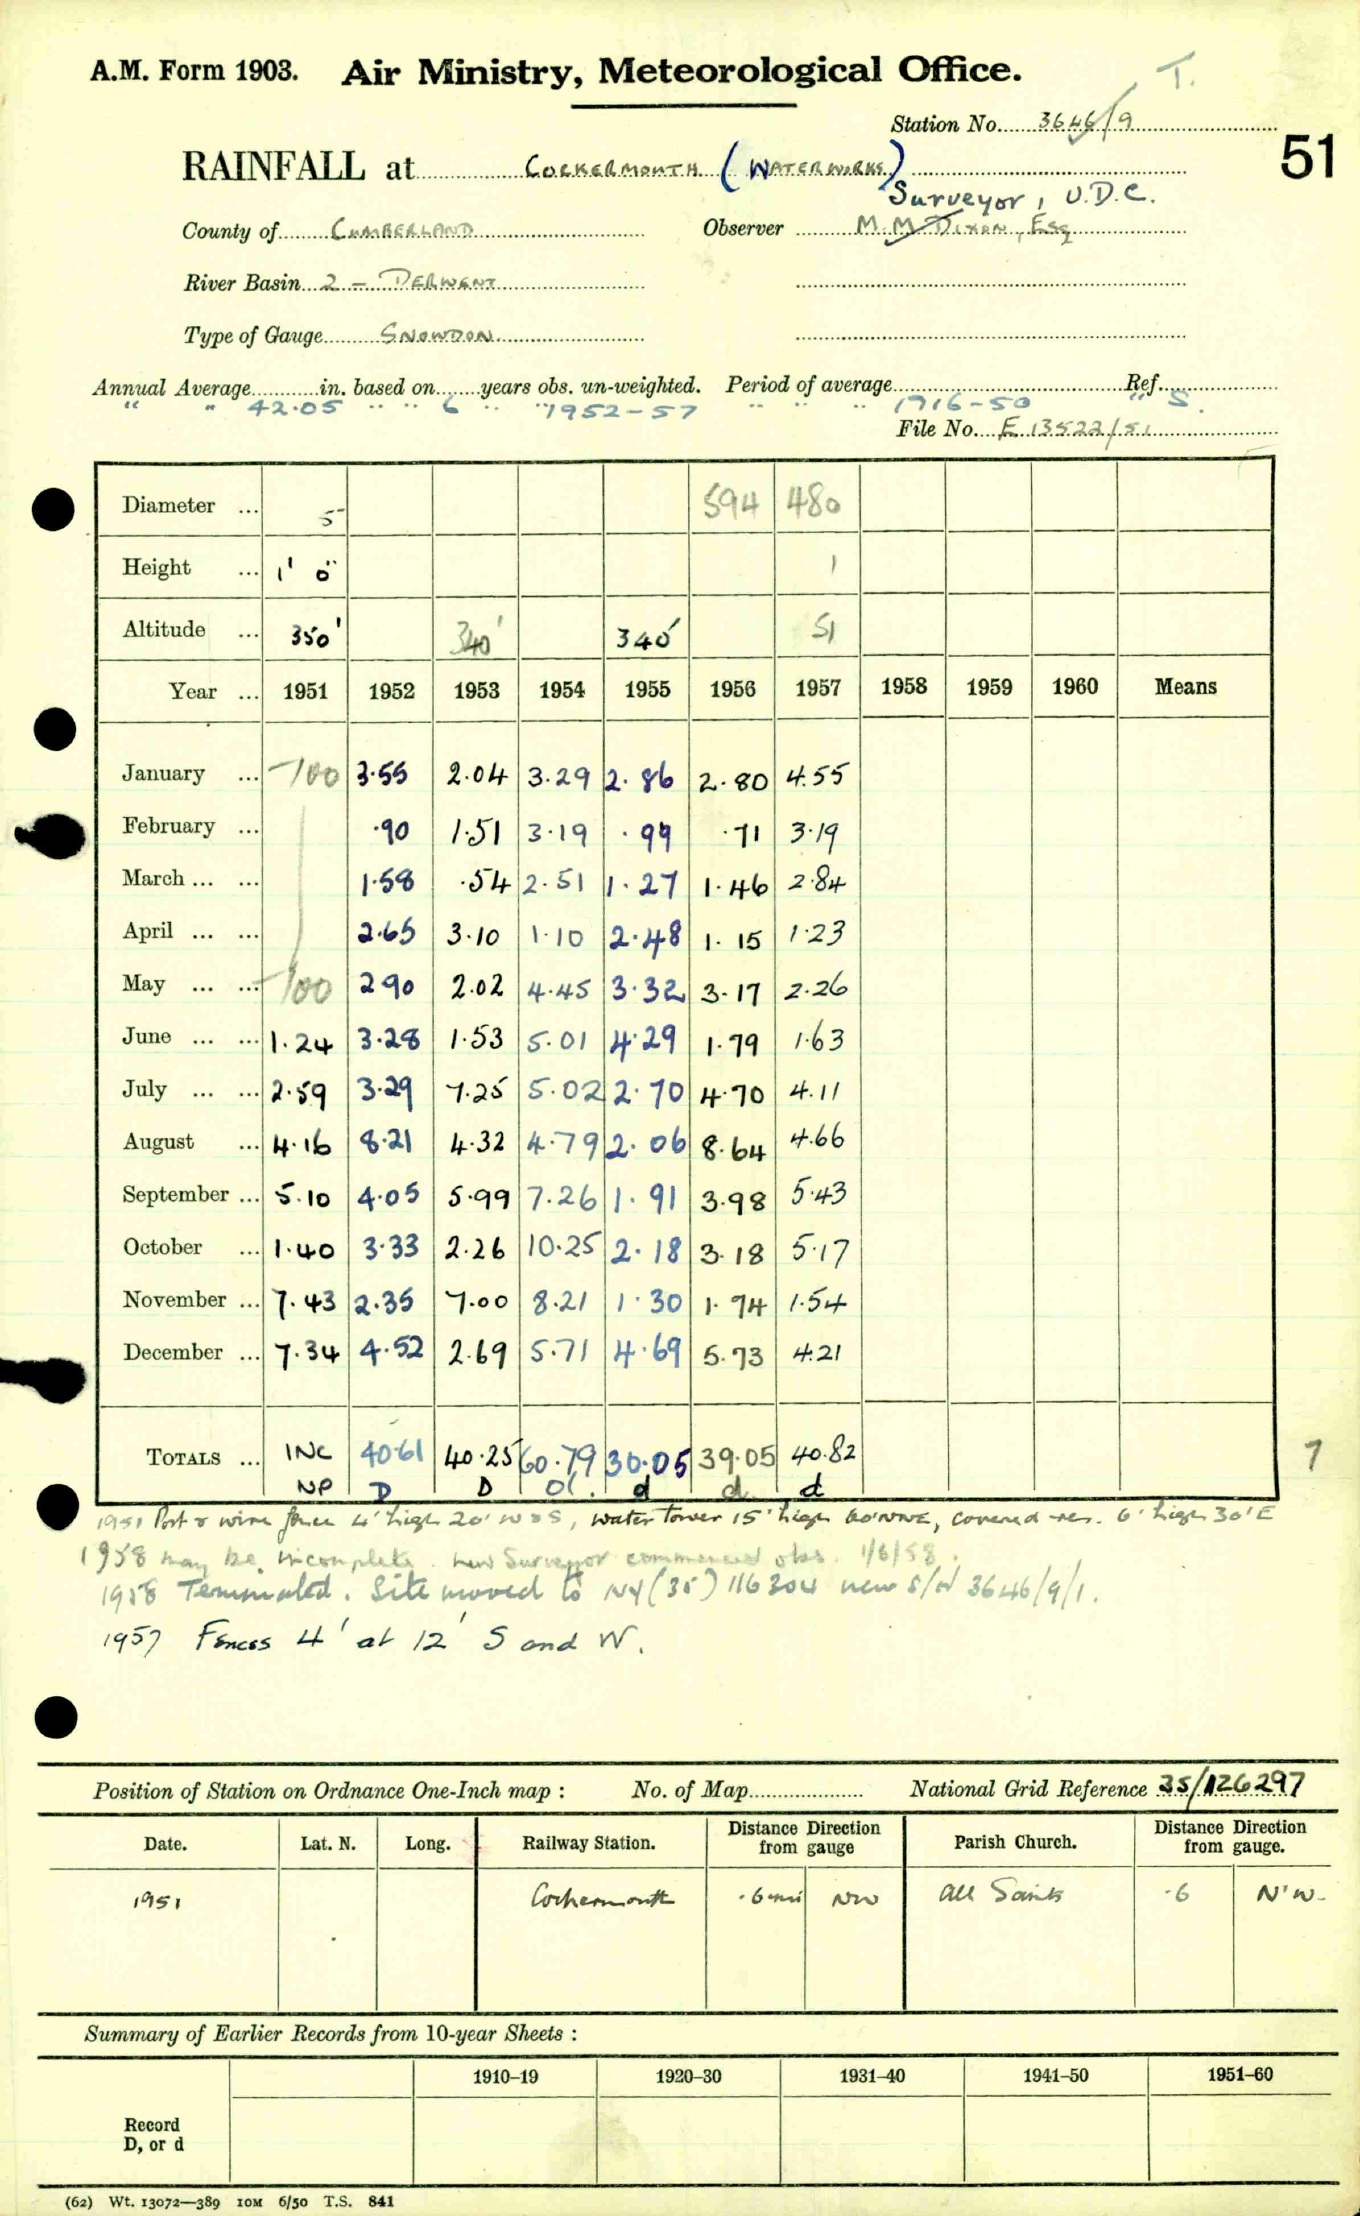 A.M. Form 1903. Air Ministry, Meteorological Office. T.
Station No. 3646/9
51
RAINFALL at Cockermouth (Waterworks)
Surveyor, U.D.C.
County of Cumberland Observer M. M. Dixon, Esq
River Basin 2 - Derwent
Type of Gauge Snowdon
Annual Average in. based on years obs. un-weighted. Period of average Ref.
" " 42.05 " " 6 " " 1952-57 " " " 1916-50 " S.
File No. E 13522/51
Diameter ... 5" 594 480
Height ... 1' 0" 1
Altitude ... 350' 340' 340' 51
Year ... 1951 1952 1953 1954 1955 1956 1957 1958 1959 1960 Means
January ... -100 3.55 2.04 3.29 2.86 2.80 4.55
February ... .90 1.51 3.19 .99 .71 3.19
March ... ... 1.58 .54 2.51 1.27 1.46 2.84
April ... ... 2.65 3.10 1.10 2.48 1.15 1.23
May ... ... -100 2.90 2.02 4.45 3.32 3.17 2.26
June ... ... 1.24 3.28 1.53 5.01 4.29 1.79 1.63
July ... ... 2.59 3.29 7.25 5.02 2.70 4.70 4.11
August ... 4.16 8.21 4.32 4.79 2.06 8.64 4.66
September ... 5.10 4.05 5.99 7.26 1.91 3.98 5.43
October ... 1.40 3.33 2.26 10.25 2.18 3.18 5.17
November ... 7.43 2.35 7.00 8.21 1.30 1.74 1.54
December ... 7.34 4.52 2.69 5.71 4.69 5.73 4.21
Totals ... INC 40.61 40.25 60.79 30.05 39.05 40.82 7
NP D D d d d
1951 Post & wire fence 4' high 20' W & S, water tower 15' high 60' NNE, covered res. 6' high 30' E
1958 may be incomplete. New Surveyor commenced obs. 1/6/58.
1958 Terminated. Site moved to NY (35) 116304 new S/N 3646/9/1.
1957 Fences 4' at 12' S and W.
Position of Station on Ordnance One-Inch map : No. of Map National Grid Reference 35/126297
Date. Lat. N. Long. Railway Station. Distance Direction from gauge Parish Church. Distance Direction from gauge.
1951 Cockermouth .6 mi NW All Saints .6 N'W.
Summary of Earlier Records from 10-year Sheets :
1910–19 1920–30 1931–40 1941–50 1951–60
Record
D, or d
(62) Wt. 13072—389 10M 6/50 T.S. 841